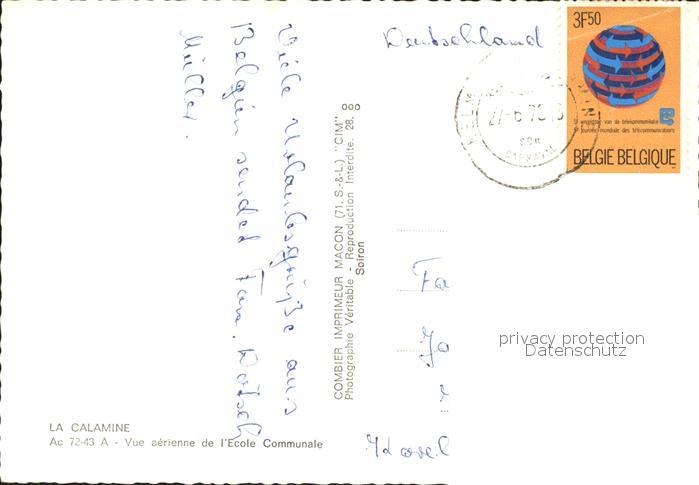 Deutschland
3F50
5e werelddag van de telecommunikatie
5e journée mondiale des télécommunications
BELGIE BELGIQUE
Viele Urlaubsgrüße aus
Belgien sendet Fam.
Müller.
COMBIER IMPRIMEUR MACON (71. S.-&-L.) "CIM"
Photographie Véritable - Reproduction Interdite. 28.
Soiron
Fa
Jo
privacy protection
Datenschutz
LA CALAMINE
Ac 72-43 A - Vue aérienne de l'Ecole Communale